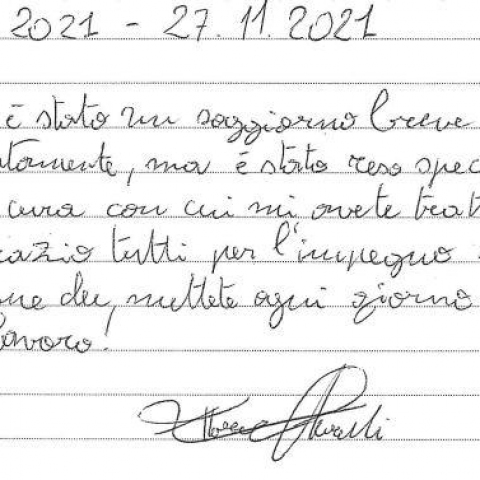 2021 - 27.11.2021
è stato un soggiorno breve
tamente, ma è stato reso spec
cura con cui mi avete trat
razio tutti per l'impegno
ne che, mettete ogni giorno
lavoro!